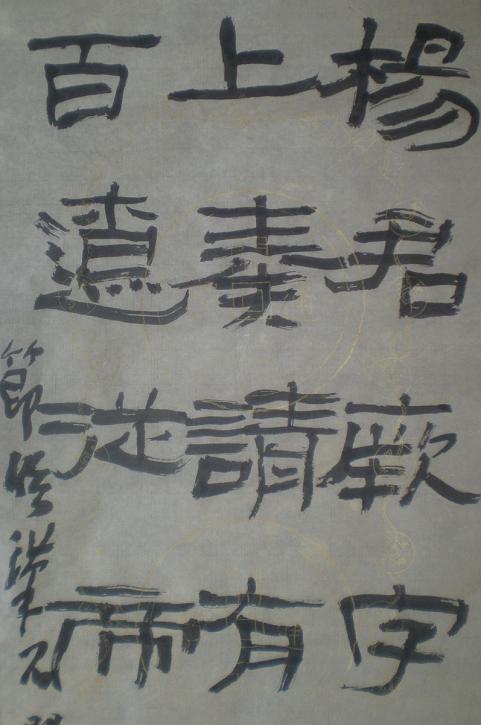 楊君厥字
上奏請有
百遼從帝
節臨漢石